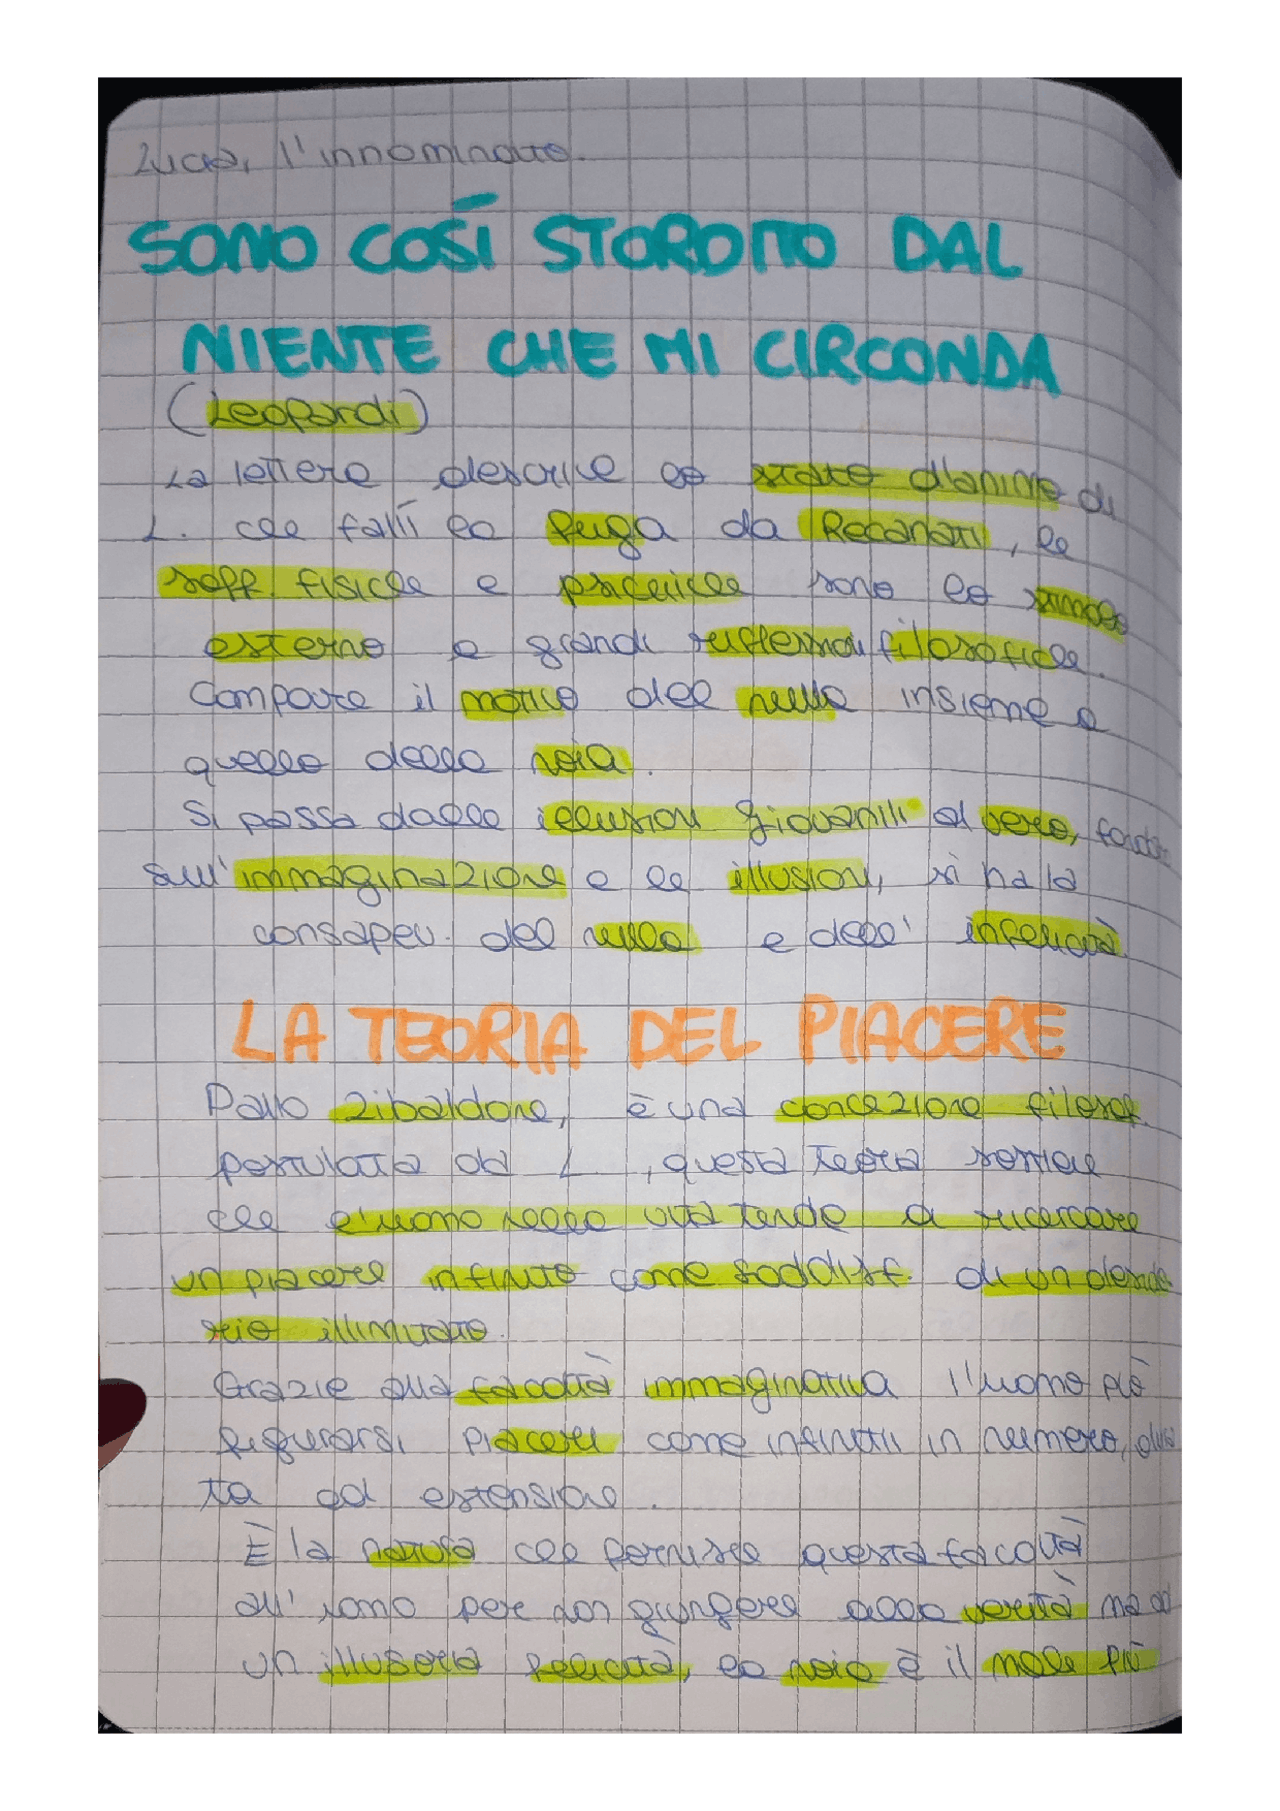 Lucia, l'innominato.
SONO COSÍ STORDITO DAL
NIENTE CHE MI CIRCONDA
(Leopardi)
La lettera descrive lo stato d'animo di
L. che fallì la fuga da Recanati, le
soff. fisiche e psichiche sono lo stimolo
esterno a grandi riflessioni filosofiche.
Compare il motivo del nulla insieme a
quello della noia.
Si passa dalle illusioni giovanili al vero,
sull'immaginazione e le illusioni, si ha la
consapev. del nulla e dell'infelicità
LA TEORIA DEL PIACERE
Dallo Zibaldone, è una concezione filosof.
postulata da L, questa teoria sostiene
che l'uomo nella vita tende a ricercare
un piacere infinito come soddisf. di un deside
rio illimitato.
Grazie alla facoltà immaginativa l'uomo può
figurarsi piaceri come infiniti in numero, dura
ta ed estensione.
È la natura che fornisce questa facoltà
all'uomo per non giungere alla verità ma ad
un illusoria felicità, la noia è il male più